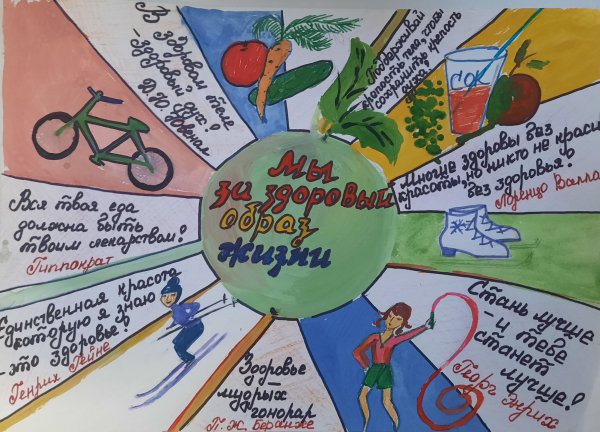 Мы
за здоровый
образ
жизни
В
здоровом теле
- здоровый дух!
Д. Ю. Ювенал
Поддерживай
крепость тела, чтобы
сохранить крепость
духа
СОК
Многие здоровы без
красоты, но никто не краси
без здоровья!
Лоренцо Валла
Стань лучше
- и тебе
станет
лучше!
Георг Энрих
Здоровье
- мудрых
гонорар
П. Ж. Беранже
Единственная красота
которую я знаю
- это здоровье!
Генрих Гейне
Вся твоя еда
должна быть
твоим лекарством!
Гиппократ